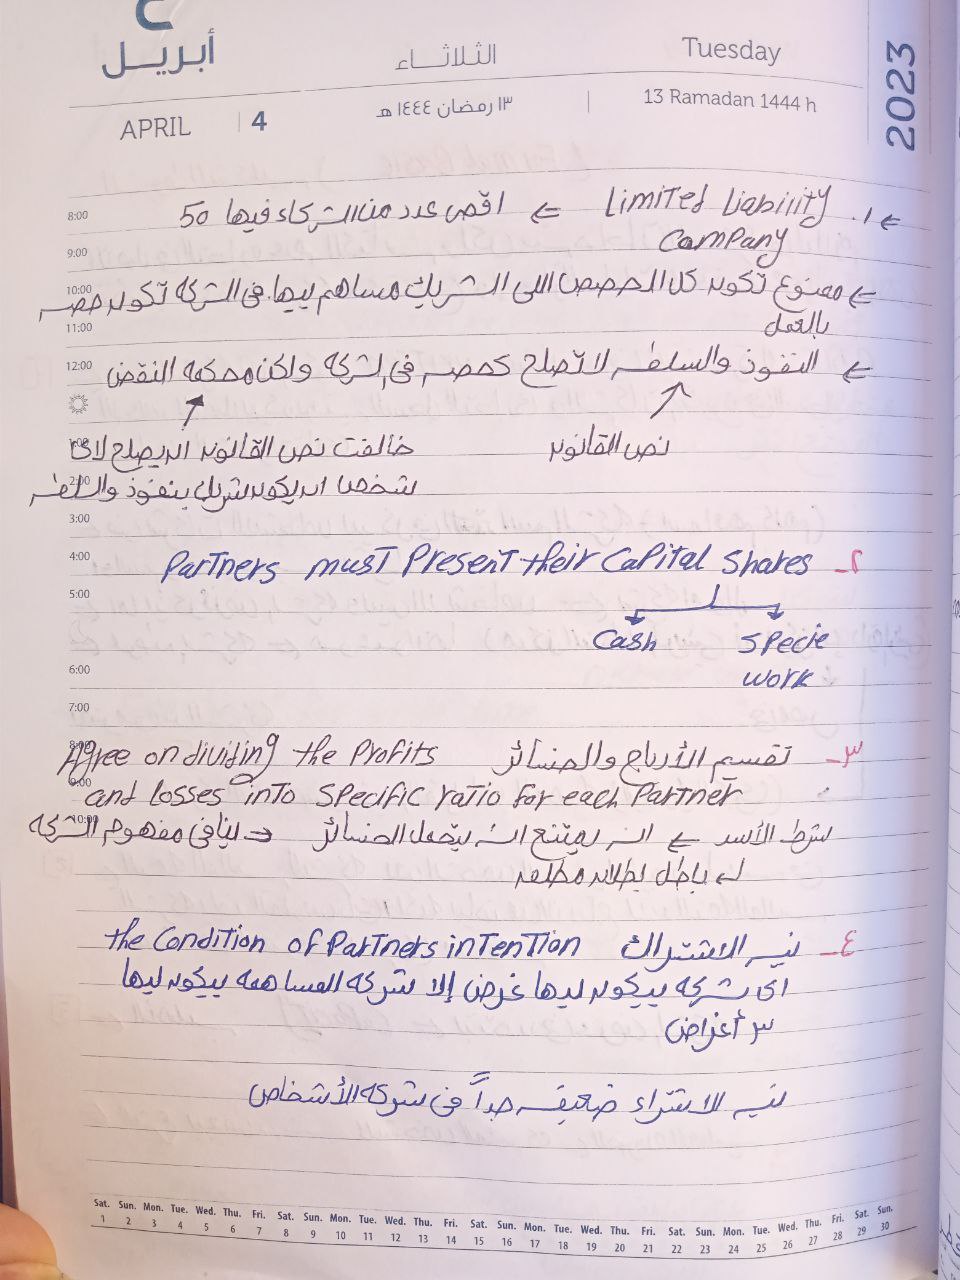 ٤
أبريل
الثلاثاء
Tuesday
2023
APRIL | 4
١٣ رمضان ١٤٤٤ هـ | 13 Ramadan 1444 h
١. Limited Liability ⇐ اقصى عدد من الشركاء فيها 50
Company
⇐ ممنوع تكون كل الحصص اللى الشريك مساهم بيها فى الشركة تكون حصه
بالعمل
⇐ النفوذ والسلطه لا تصلح كحصه فى شركة ولكن محكمه النقض
نص القانون
خالفت نص القانون اند يصلح لاى
شخص ان يكون شريك بنفوذ والسلطه
٢- Partners must Present their Capital Shares
Cash
Specie
work
٣- تقسيم الأرباح والخسائر Agree on dividing the Profits
and losses into specific ratio for each Partner
شرط الأسد ⇐ ان يمتنع ان يتحمل الخسائر → ينافى مفهوم الشركه
باطل بطلان مطلقه
٤- نيه الاشتراك the Condition of Partners intention
اى شركه بيكون ليها غرض إلا شركه المساهمه بيكون ليها
٣ أغراض
نيه الاشتراء ضعيفه جداً فى شركه الأشخاص
8:00
9:00
10:00
11:00
12:00
1:00
2:00
3:00
4:00
5:00
6:00
7:00
8:00
9:00
10:00
Sat. Sun. Mon. Tue. Wed. Thu. Fri. Sat. Sun. Mon. Tue. Wed. Thu. Fri. Sat. Sun. Mon. Tue. Wed. Thu. Fri. Sat. Sun. Mon. Tue. Wed. Thu. Fri. Sat. Sun.
1 2 3 4 5 6 7 8 9 10 11 12 13 14 15 16 17 18 19 20 21 22 23 24 25 26 27 28 29 30